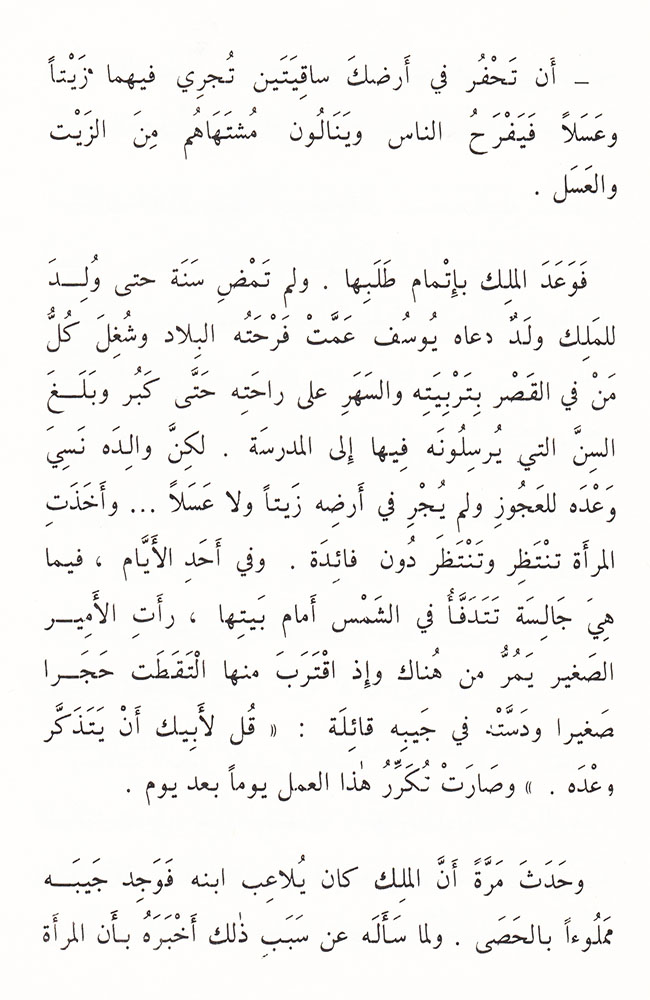 ـ أَن تَحْفُر في أَرضكَ ساقِيَتَين تُجرِي فيهما زَيْتاً
وعَسَلاً فَيَفْرَحُ الناس ويَنَالُون مُشتَهَاهُم مِنَ الزَيْت
والعَسَل .
فَوَعَدَ الملِك بإِتْمام طَلَبِها . ولم تَمْضِ سَنَة حتى وُلِــدَ
للمَلِك ولَدٌ دعاه يُوسُف عَمَّتْ فَرْحَتُه البِلاد وشُغِلَ كُلُّ
مَنْ في القَصْر بِتَرْبِيَتِه والسَهَرِ على راحَتِه حَتَّى كَبُر وبَلَــغَ
السِنَّ التي يُرسِلُونَه فِيها إِلى المدرسَة . لكِنَّ والِدَه نَسِيَ
وَعْدَه للعَجُوزِ ولم يُجْرِ في أَرضِه زَيتاً ولا عَسَلاً ... وأَخَذَتِ
المرأَة تنْتَظِر وتَنْتَظَر دُون فائِدَة . وفي أَحَدِ الأَيَّام ، فيما
هِيَ جَالِسَة تَتَدَفَّأُ في الشَمْس أَمام بَيتِها ، رأَتِ الأَمِيــر
الصَغير يَمُرُّ من هُناك وإِذ اقْتَرَبَ منها الْتَقَطَت حَجَــرا
صَغيرا ودَسَّتْهُ في جَيبِه قائِلَة : « قُل لأَبِيك أَنْ يَتَذَكَّر
وعْدَه . » وصَارَتْ تُكَرِّرُ هٰذا العمل يوماً بعد يوم .
وحَدَثَ مَرَّةً أَنَّ الملِك كان يُلاعِب ابنه فَوَجِد جَيبَــه
مَملُوءاً بالحَصَى . ولما سَأَلَه عن سَبَبِ ذٰلك أَخْبَرَهُ بأَن المرأَة